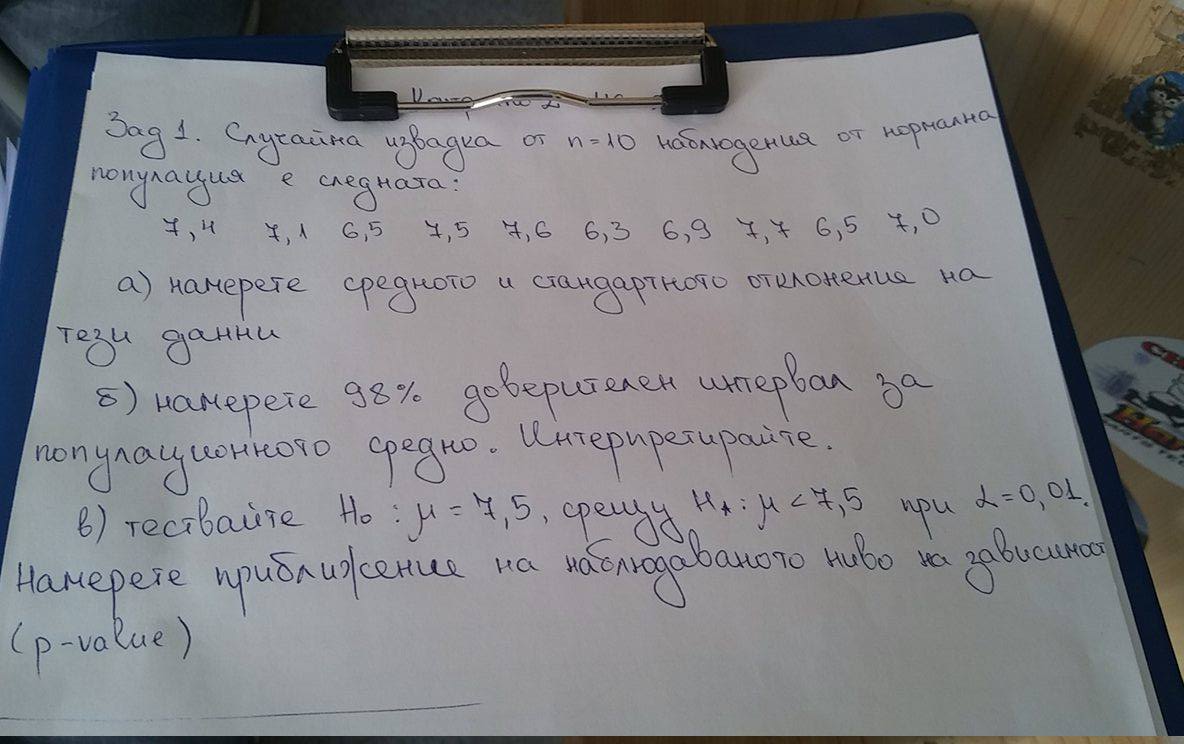 Зад 1. Случайна извадка от n=10 наблюдения от нормална
популация е следната:
7,4 7,1 6,5 7,5 7,6 6,3 6,9 7,7 6,5 7,0
а) намерете средното и стандартното отклонение на
тези данни
б) намерете 98% доверителен интервал за
популационното средно. Интерпретирайте.
в) тествайте H₀ : μ = 7,5, срещу H₁ : μ < 7,5 при α=0,01.
Намерете приближение на наблюдаваното ниво на зависимост
(p-value)